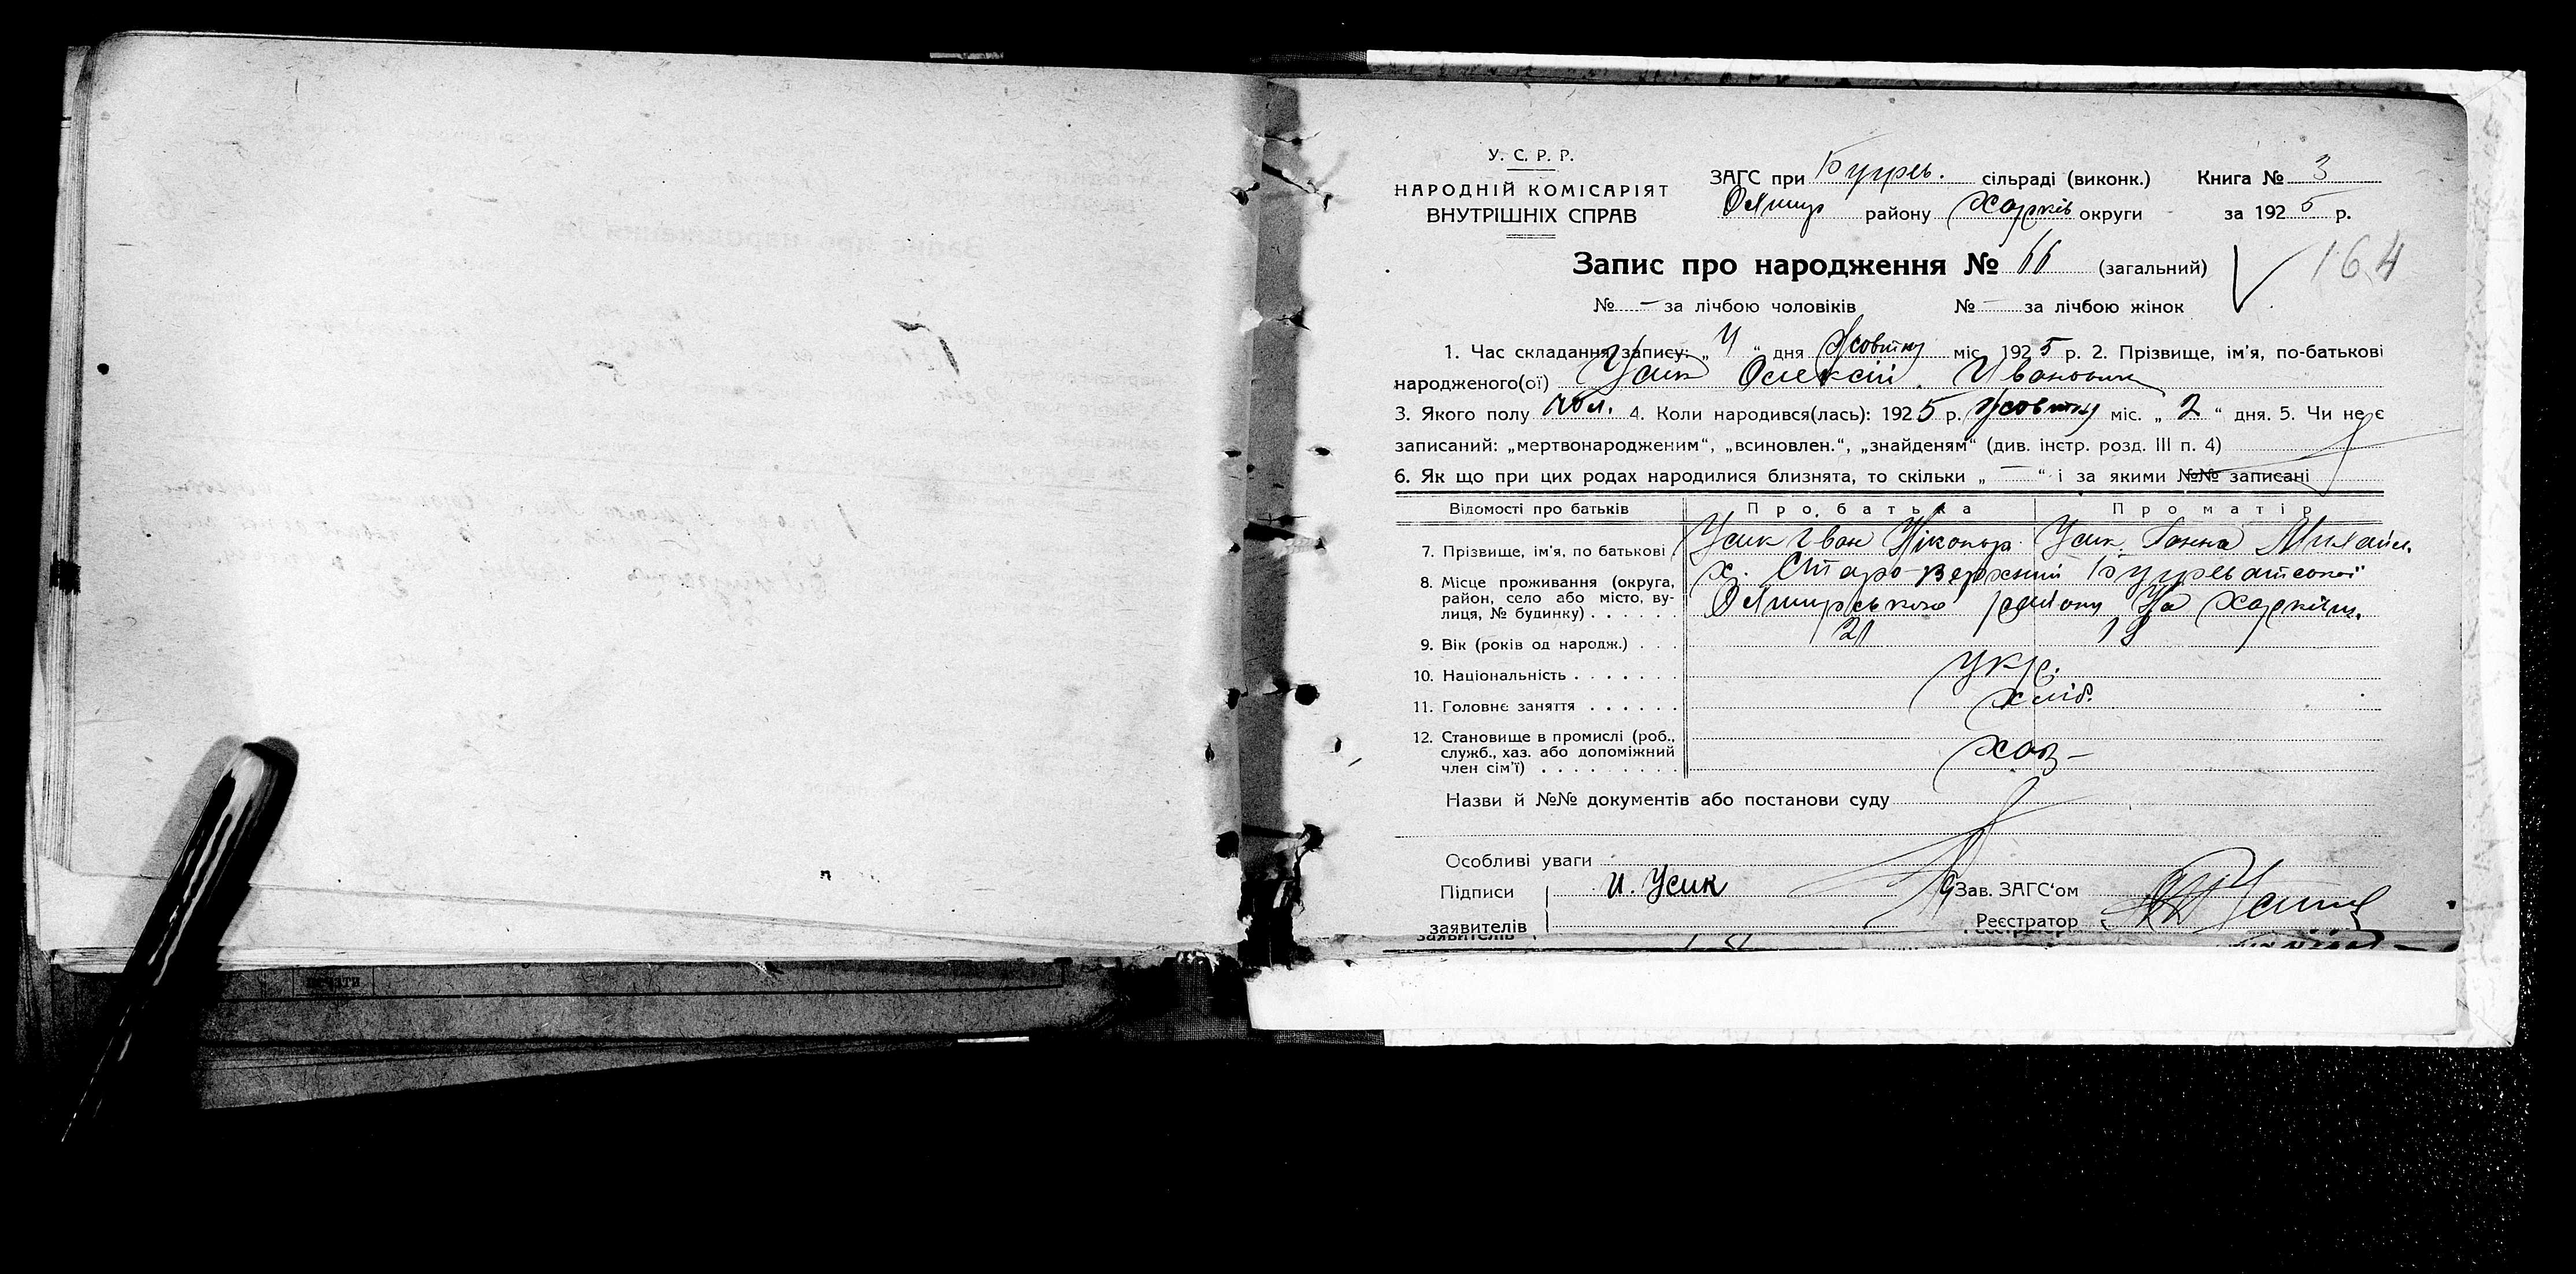 У. С. Р. Р.
НАРОДНІЙ КОМІСАРІЯТ
ВНУТРІШНІХ СПРАВ
ЗАГС при сільраді (виконк.) Книга № 3
району Харків округи за 1925 р.
Запис про народження № 66 (загальний) 164
№ – за лічбою чоловіків № – за лічбою жінок
1. Час складання запису: „ 4 “ дня Жовтня міс. 1925 р. 2. Прізвище, ім'я, по-батькові
народженого(ої) Усик Олексій Иванович
3. Якого полу чол. 4. Коли народився(лась): 1925 р. Жовтня міс. „ 2 “ дня. 5. Чи не є
записаний: „мертвонародженим“, „всиновлен.“, „знайденям“ (див. інстр. розд. III п. 4)
6. Як що при цих родах народилися близнята, то скільки „ – “ і за якими №№ записані
Відомості про батьків Про батька Про матір
7. Прізвище, ім'я, по батькові Усик Иван Ніконор. Усик Ганна Михайл.
8. Місце проживання (округа, район, село або місто, вулиця, № будинку) х. Старо-Верхній
району на Харківщ.
9. Вік (років од народж.) 21 19
10. Національність укр.
11. Головне заняття хліб.
12. Становище в промислі (роб., служб., хаз. або допоміжний член сім'ї) хаз –
Назви й №№ документів або постанови суду
Особливі уваги
Підписи И. Усик Зав. ЗАГС'ом
заявителів Реєстратор
заявителів